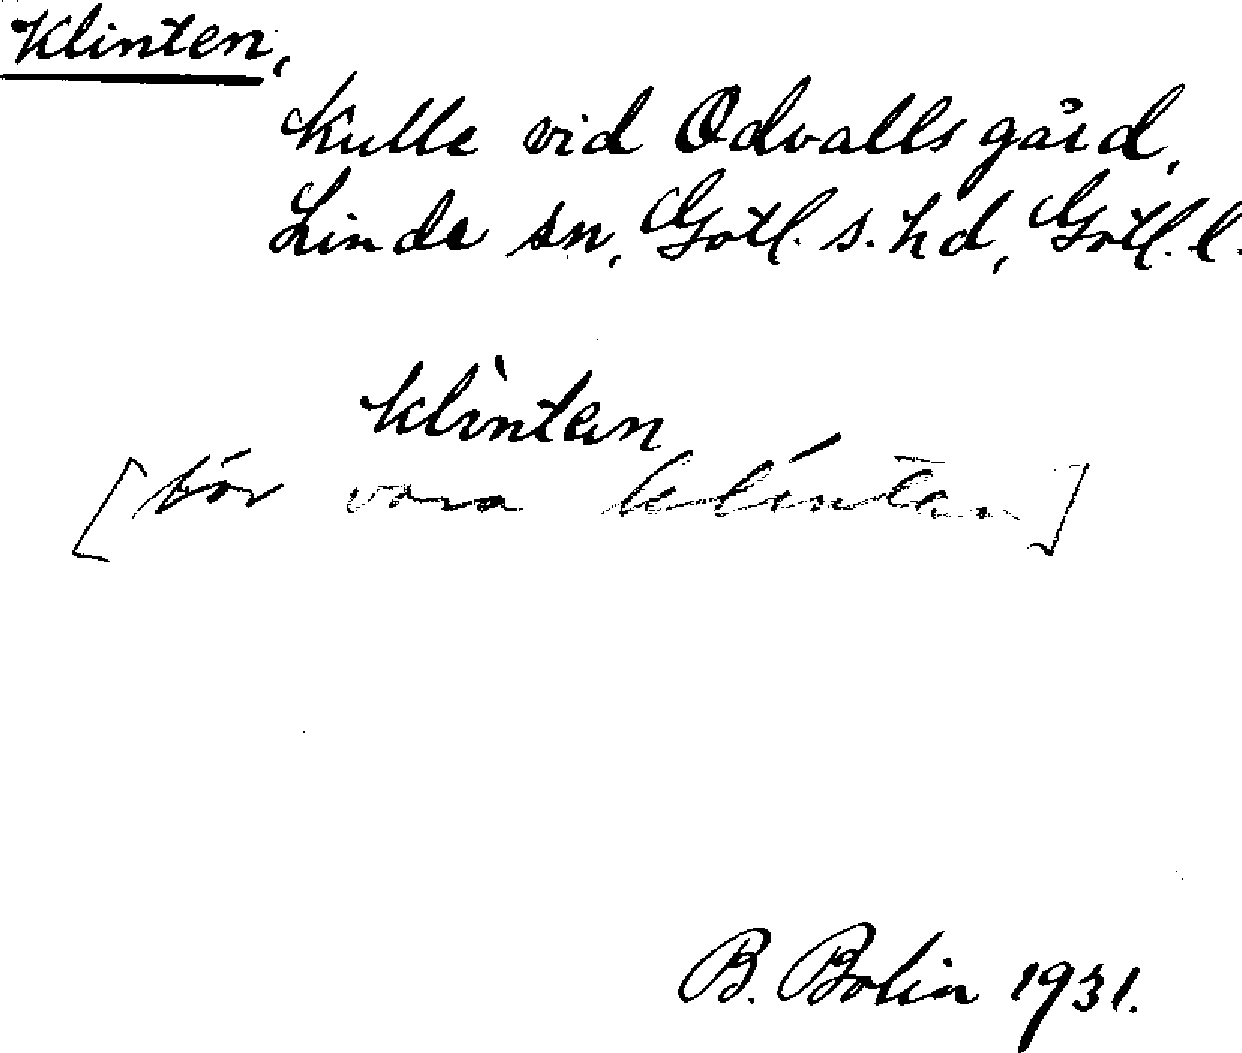 Klinten,
Kulle vid Odvalls gård,
Linde sn, Gotl. s. hd, Gotl. l.
klìntęn
[bör vara klíntęn]
B. Bolin 1931.